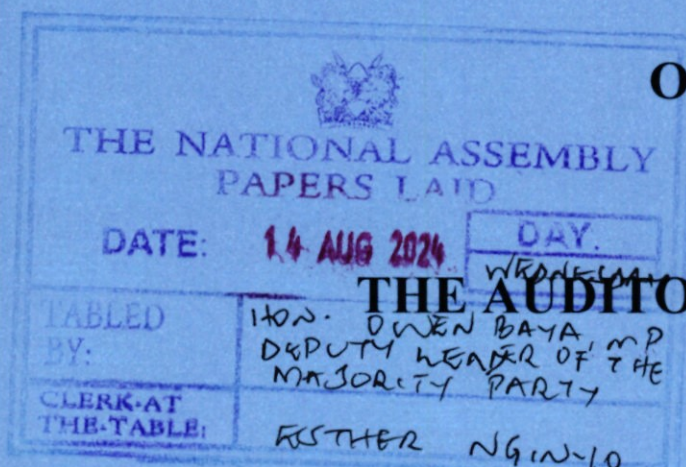 O
THE NATIONAL ASSEMBLY
PAPERS LAID
DATE: 14 AUG 2024 DAY.
WEDNESDAY
THE AUDITO
TABLED BY:
HON. OWEN BAYA, MP
DEPUTY LEADER OF THE
MAJORITY PARTY
CLERK-AT
THE-TABLE:
ESTHER